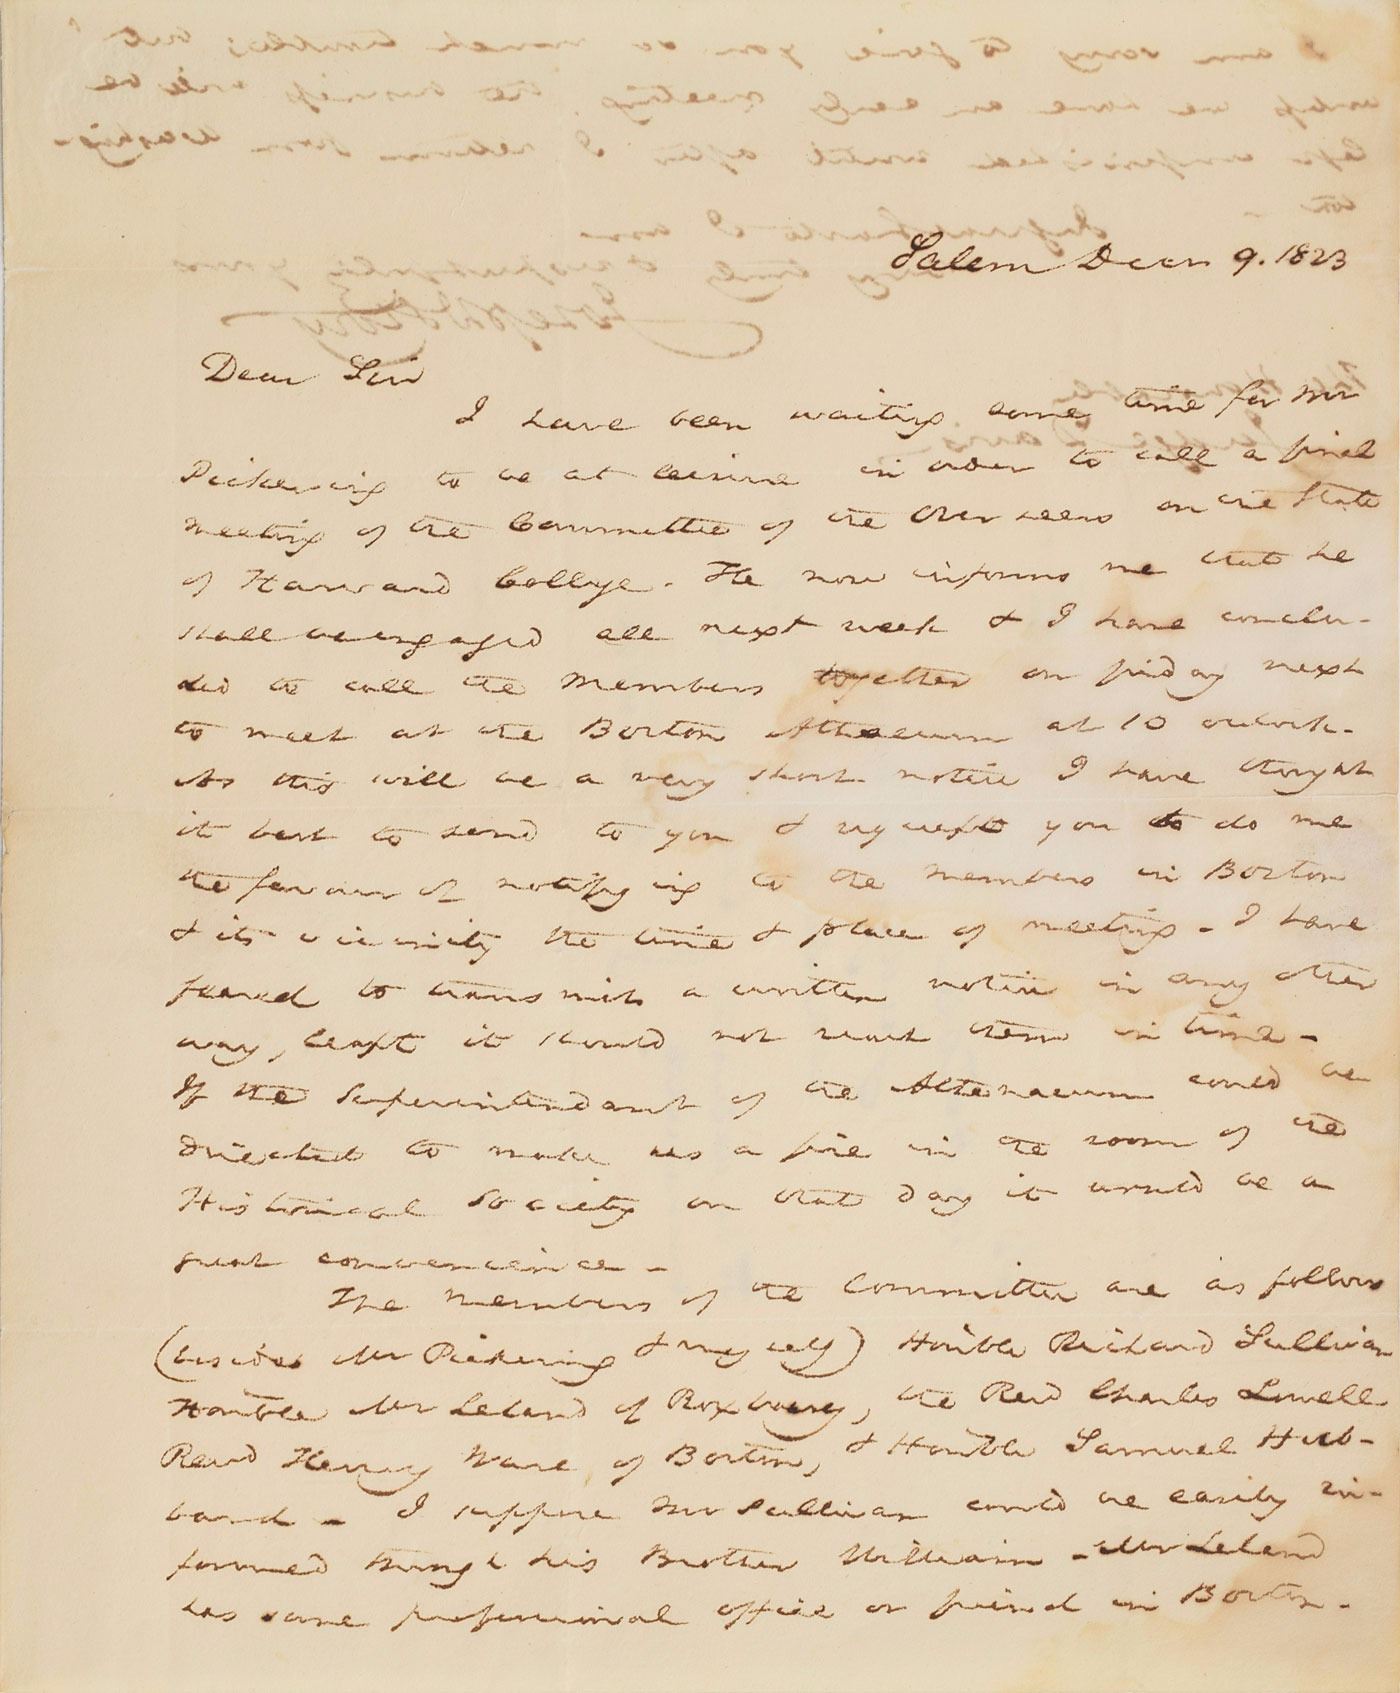 Salem Decr 9. 1823
Dear Sir
I have been waiting some time for Mr
Pickering to be at leisure in order to call a final
meeting of the Committee of the Overseers on the State
of Harvard College. He now informs me that he
shall be engaged all next week & I have conclu-
ded to call the members together on friday next
to meet at the Boston Atheneum at 10 oclock.
As this will be a very short notice I have thought
it best to send to you & request you to do me
the favour of notifying to the members in Boston
& its vicinity the time & place of meeting - I have
feared to transmit a written notice in any other
way, least it should not reach them in time -
If the Superintendant of the Athenaeum could be
directed to make us a fire in the room of the
Historical Society on that day it would be a
great convenience -
The members of the Committee are as follows
(besides Mr Pickering & myself) Honble Richard Sullivan
Honble Mr Leland of Roxbury, the Revd Charles Lowell
Revd Henry Ware of Boston, & Honble Samuel Hub-
bard - I suppose Mr Sullivan could be easily in-
formed through his Brother William - Mr Leland
has some professional office or friend in Boston.